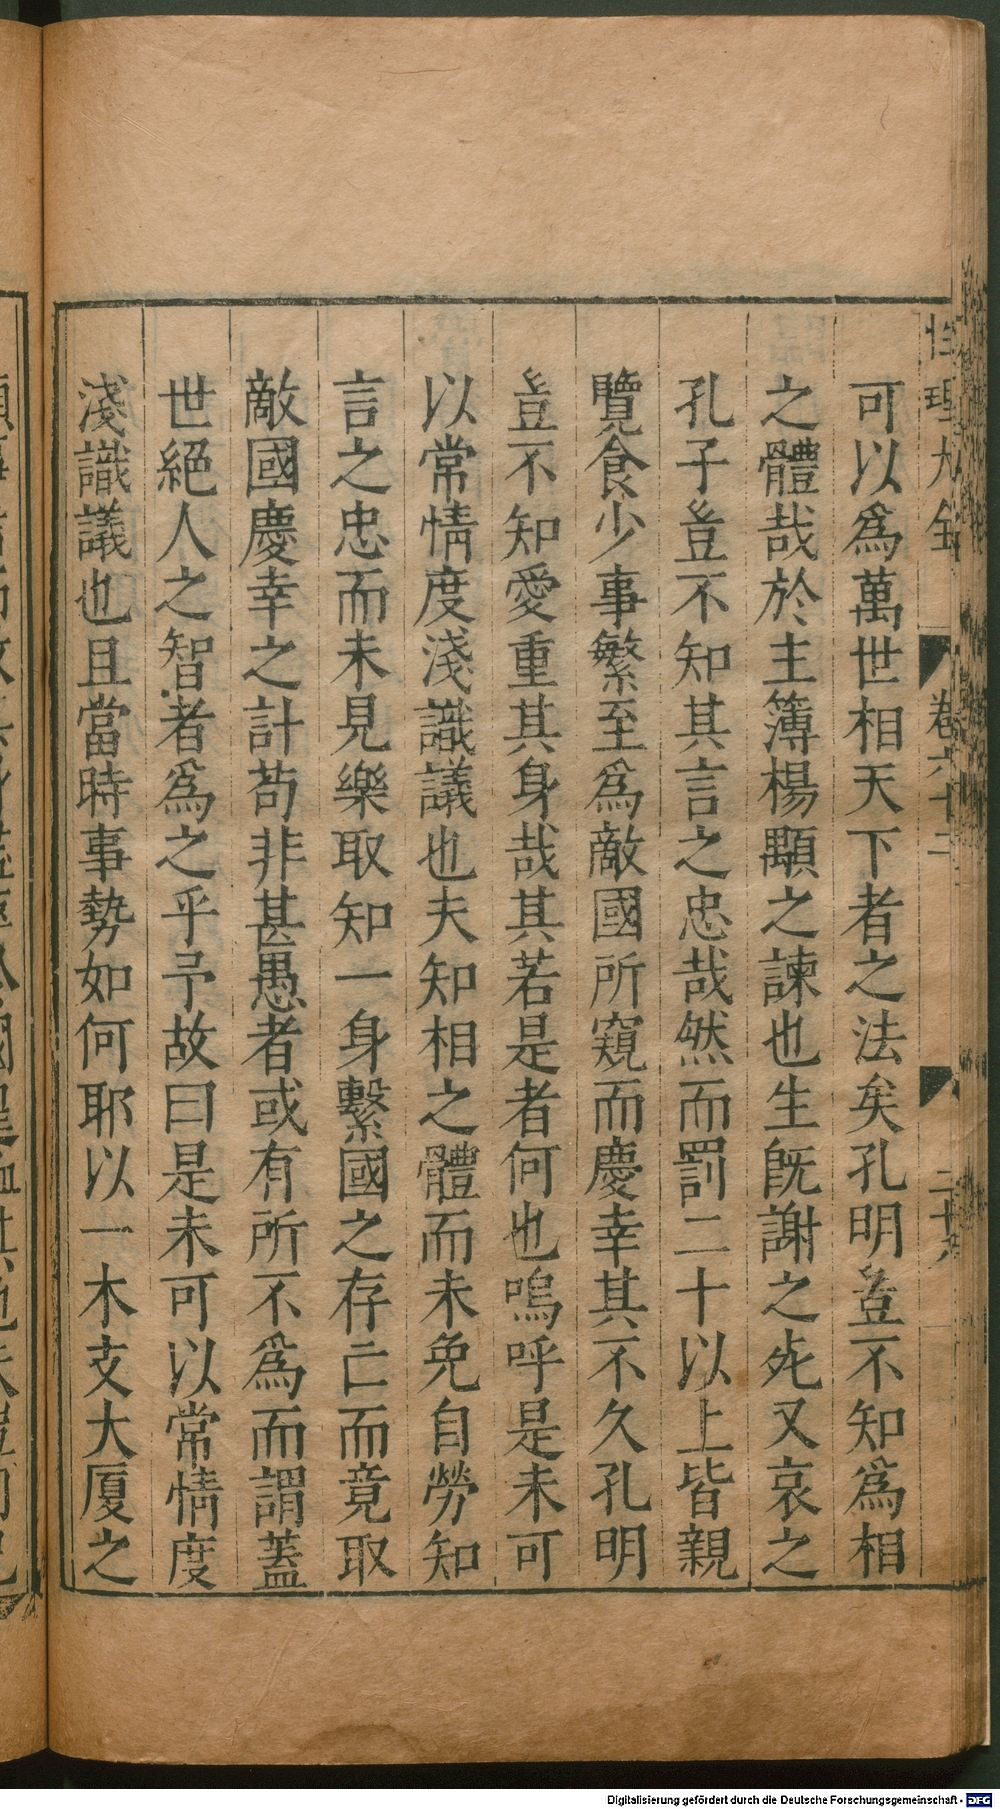 性理大全 卷六十二
可以爲萬世相天下者之法矣孔明豈不知爲相
之體哉於主簿楊顒之諫也生旣謝之死又哀之
孔子豈不知其言之忠哉然而罰二十以上皆親
覽食少事繁至爲敵國所窺而慶幸其不久孔明
豈不知愛重其身哉其若是者何也嗚呼是未可
以常情度淺識議也夫知相之體而未免自勞知
言之忠而未見樂取知一身繫國之存亡而竟取
敵國慶幸之計苟非甚愚者或有所不爲而謂蓋
世絕人之智者爲之乎予故曰是未可以常情度
淺識議也且當時事勢如何耶以一木支大厦之
Digitalisierung gefördert durch die Deutsche Forschungsgemeinschaft - DFG